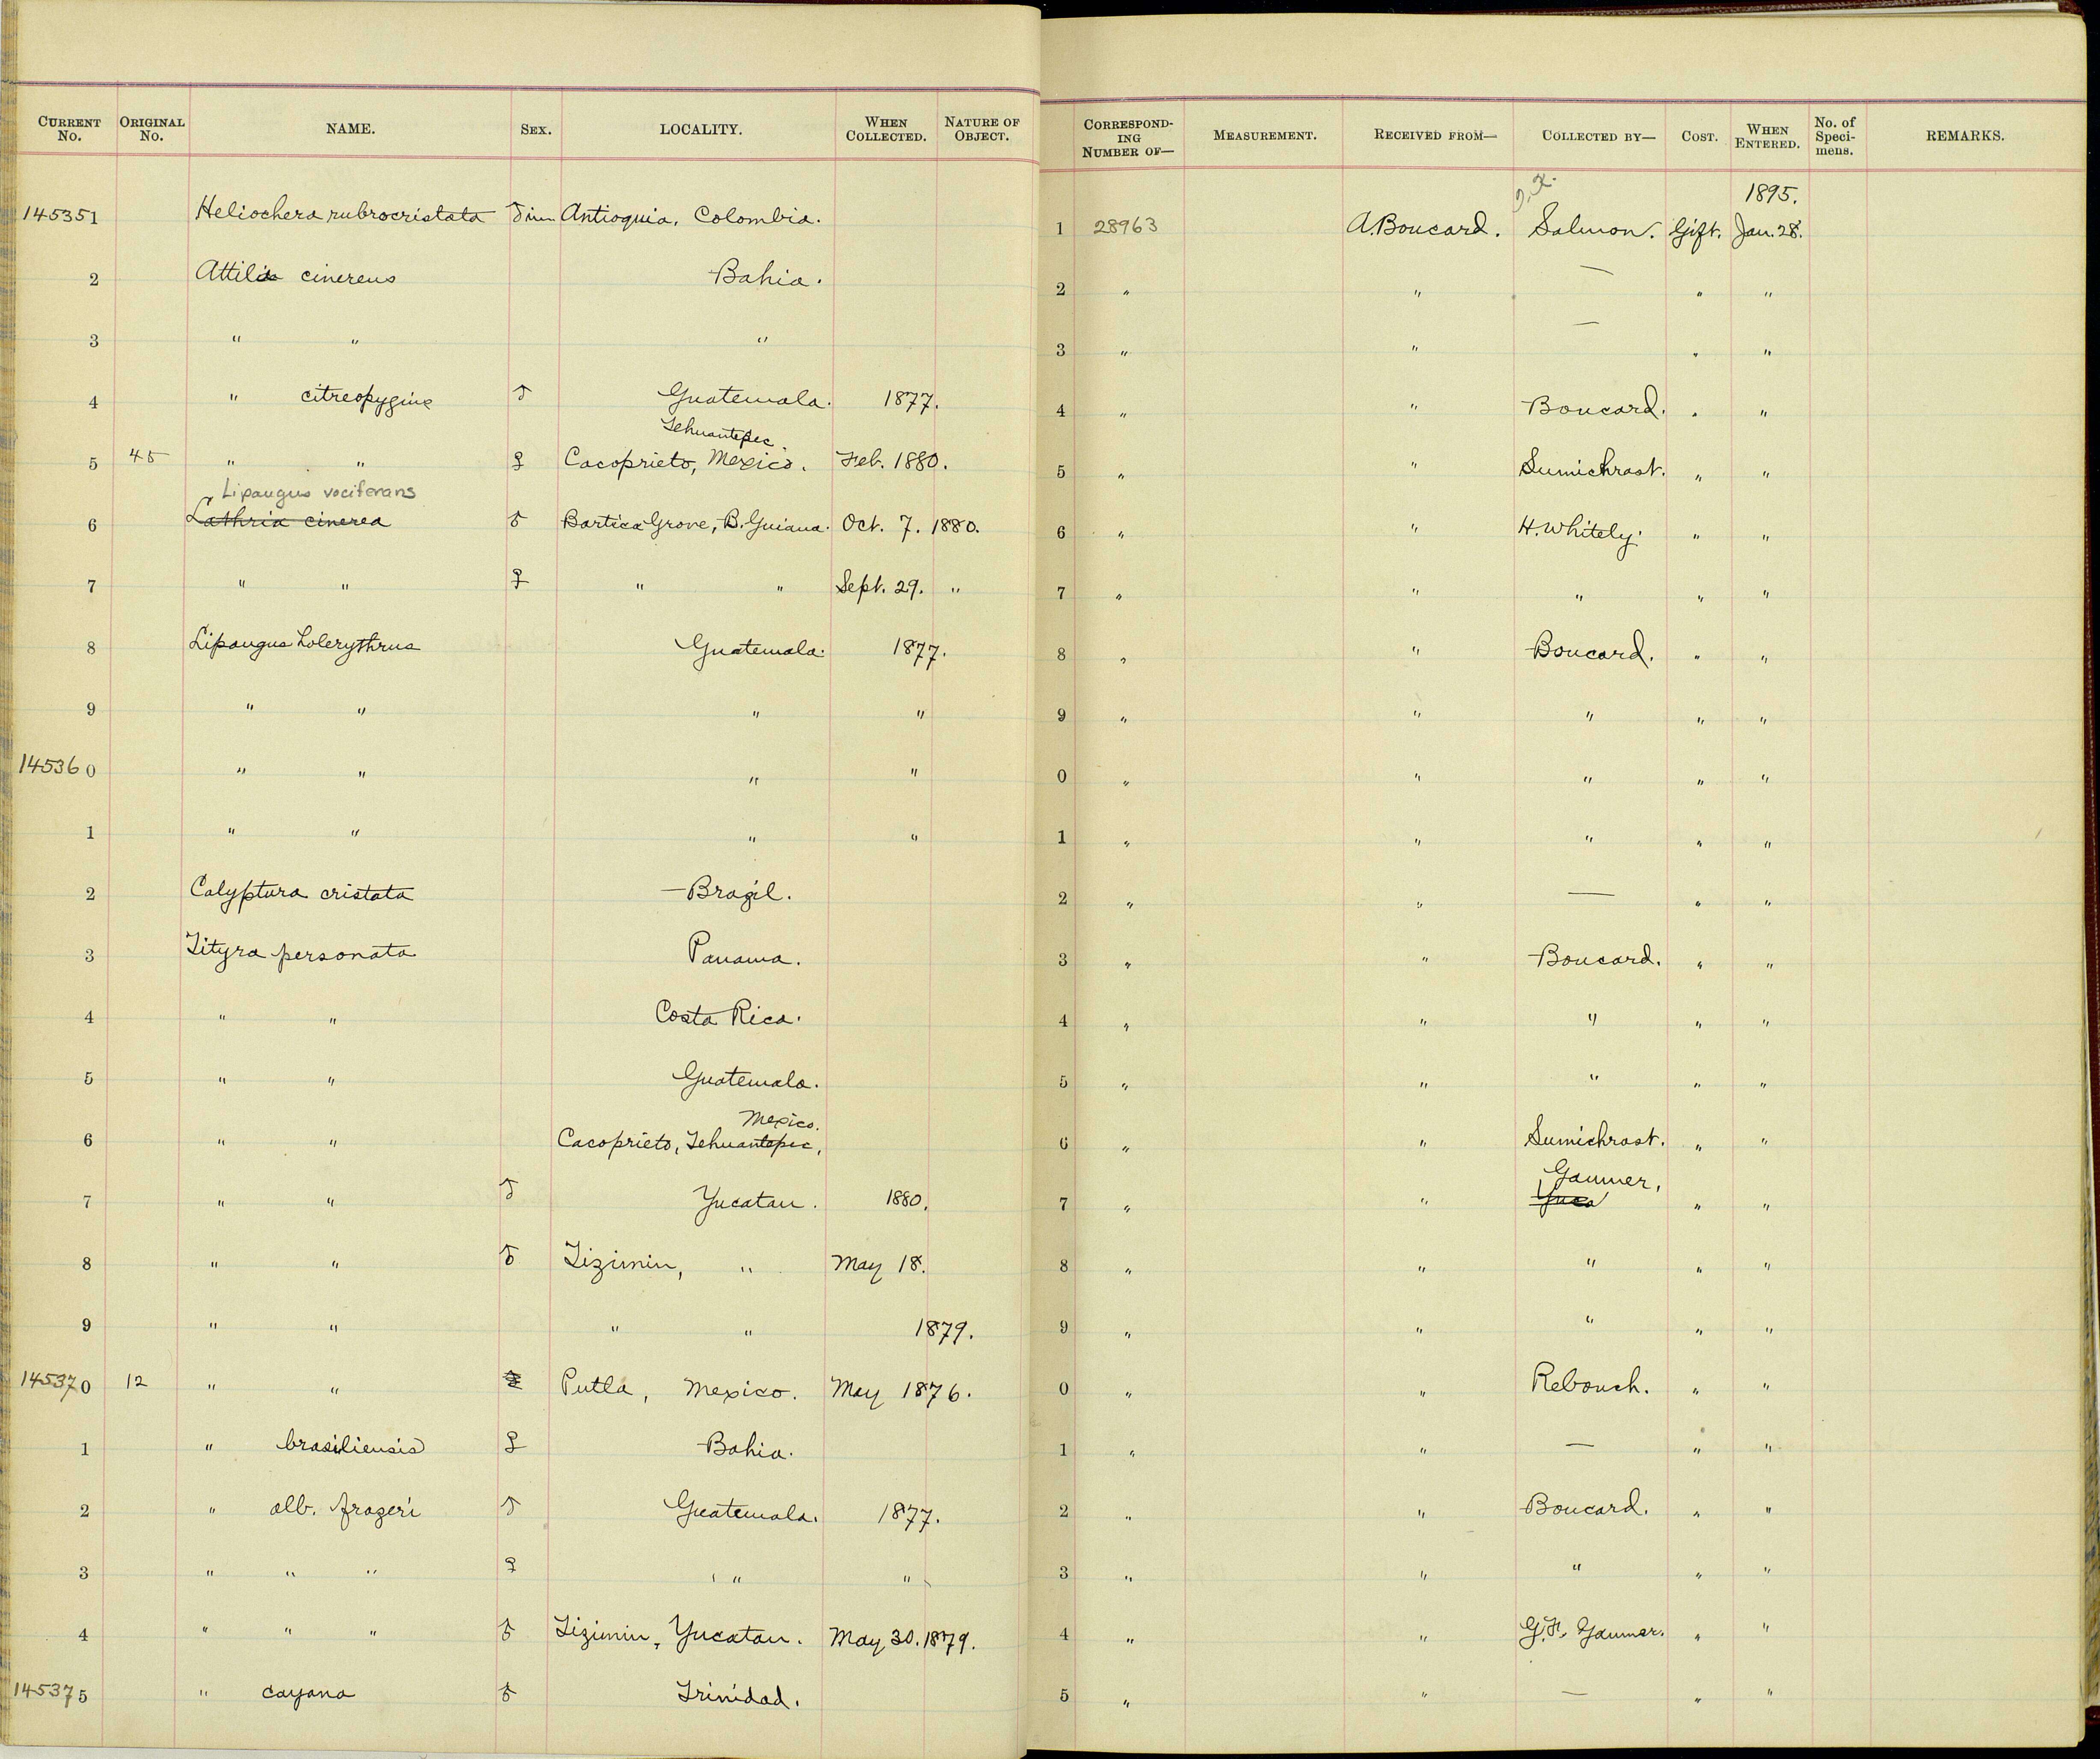 CURRENT No. ORIGINAL No. NAME. SEX. LOCALITY. WHEN COLLECTED. NATURE OF OBJECT. CORRESPONDING NUMBER OF— MEASUREMENT. RECEIVED FROM— COLLECTED BY— COST. WHEN ENTERED. No. of Specimens. REMARKS.
1895.
145351 Heliochera rubrocristata ♂ im Antioquia, Colombia. 1 28963 A. Boucard. Salmon. Gift. Jan. 28.
2 Attila cinereus Bahia. 2 " " — " "
3 " " " 3 " " — " "
4 " citreopygius ♂ Guatemala. 1877. 4 " " Boucard. " "
Tehuantepec.
5 45 " " ♀ Cacoprieto, Mexico. Feb. 1880. 5 " " Sumichrast. " "
Lipaugus vociferans
6 Lathria cinerea ♂ Bartica Grove, B. Guiana. Oct. 7. 1880. 6 " " H. Whitely. " "
7 " " ♀ " " Sept. 29. " 7 " " " " "
8 Lipaugus holerythrus Guatemala. 1877. 8 " " Boucard. " "
9 " " " " 9 " " " " "
145360 " " " " 0 " " " " "
1 " " " " 1 " " " " "
2 Calyptura cristata Brazil. 2 " " — " "
3 Tityra personata Panama. 3 " " Boucard. " "
4 " " Costa Rica. 4 " " " " "
5 " " Guatemala. 5 " " " " "
Mexico.
6 " " Cacoprieto, Tehuantepec, 6 " " Sumichrast. " "
Gaumer,
7 " " ♂ Yucatan. 1880. 7 " " Yuca " "
8 " " ♂ Tizimin, " May 18. 8 " " " " "
9 " " " " 1879. 9 " " " " "
145370 12 " " Putla, Mexico. May 1876. 0 " " Rebouch. " "
1 " brasiliensis ♀ Bahia. 1 " " — " "
2 " alb. frazeri ♂ Guatemala. 1877. 2 " " Boucard. " "
3 " " " ♀ " " 3 " " " " "
4 " " " ♂ Tizimin, Yucatan. May 30. 1879. 4 " " G. F. Gaumer. " "
145375 " cayana ♂ Trinidad. 5 " " — " "